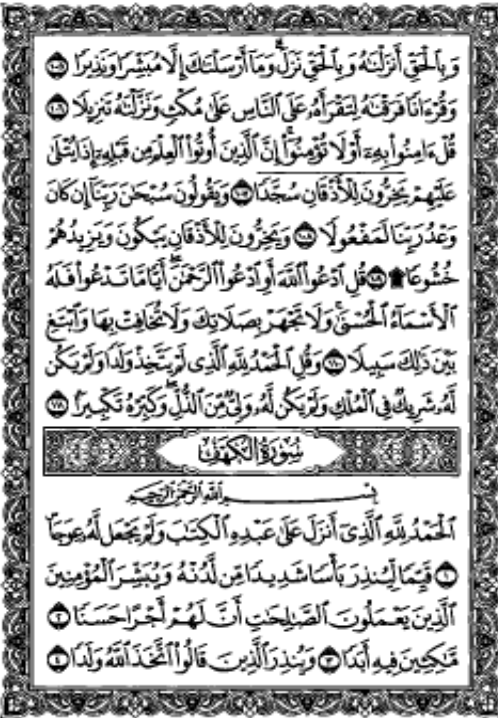 وَبِٱلْحَقِّ أَنزَلْنَٰهُ وَبِٱلْحَقِّ نَزَلَۗ وَمَآ أَرْسَلْنَٰكَ إِلَّا مُبَشِّرًا وَنَذِيرًا ١٠٥
وَقُرْءَانًا فَرَقْنَٰهُ لِتَقْرَأَهُۥ عَلَى ٱلنَّاسِ عَلَىٰ مُكْثٍ وَنَزَّلْنَٰهُ تَنزِيلًا ١٠٦
قُلْ ءَامِنُوا۟ بِهِۦٓ أَوْ لَا تُؤْمِنُوٓا۟ۚ إِنَّ ٱلَّذِينَ أُوتُوا۟ ٱلْعِلْمَ مِن قَبْلِهِۦٓ إِذَا يُتْلَىٰ
عَلَيْهِمْ يَخِرُّونَ لِلْأَذْقَانِ سُجَّدًا ١٠٧ وَيَقُولُونَ سُبْحَٰنَ رَبِّنَآ إِن كَانَ
وَعْدُ رَبِّنَا لَمَفْعُولًا ١٠٨ وَيَخِرُّونَ لِلْأَذْقَانِ يَبْكُونَ وَيَزِيدُهُمْ
خُشُوعًا ۩ ١٠٩ قُلِ ٱدْعُوا۟ ٱللَّهَ أَوِ ٱدْعُوا۟ ٱلرَّحْمَٰنَۖ أَيًّا مَّا تَدْعُوا۟ فَلَهُ
ٱلْأَسْمَآءُ ٱلْحُسْنَىٰۚ وَلَا تَجْهَرْ بِصَلَاتِكَ وَلَا تُخَافِتْ بِهَا وَٱبْتَغِ
بَيْنَ ذَٰلِكَ سَبِيلًا ١١٠ وَقُلِ ٱلْحَمْدُ لِلَّهِ ٱلَّذِى لَمْ يَتَّخِذْ وَلَدًا وَلَمْ يَكُن
لَّهُۥ شَرِيكٌ فِى ٱلْمُلْكِ وَلَمْ يَكُن لَّهُۥ وَلِىٌّ مِّنَ ٱلذُّلِّۖ وَكَبِّرْهُ تَكْبِيرًۢا ١١١
سُورَةُ ٱلْكَهْفِ
بِسْمِ ٱللَّهِ ٱلرَّحْمَٰنِ ٱلرَّحِيمِ
ٱلْحَمْدُ لِلَّهِ ٱلَّذِىٓ أَنزَلَ عَلَىٰ عَبْدِهِ ٱلْكِتَٰبَ وَلَمْ يَجْعَل لَّهُۥ عِوَجَاۜ
١ قَيِّمًا لِّيُنذِرَ بَأْسًا شَدِيدًا مِّن لَّدُنْهُ وَيُبَشِّرَ ٱلْمُؤْمِنِينَ
ٱلَّذِينَ يَعْمَلُونَ ٱلصَّٰلِحَٰتِ أَنَّ لَهُمْ أَجْرًا حَسَنًا ٢
مَّٰكِثِينَ فِيهِ أَبَدًا ٣ وَيُنذِرَ ٱلَّذِينَ قَالُوا۟ ٱتَّخَذَ ٱللَّهُ وَلَدًا ٤